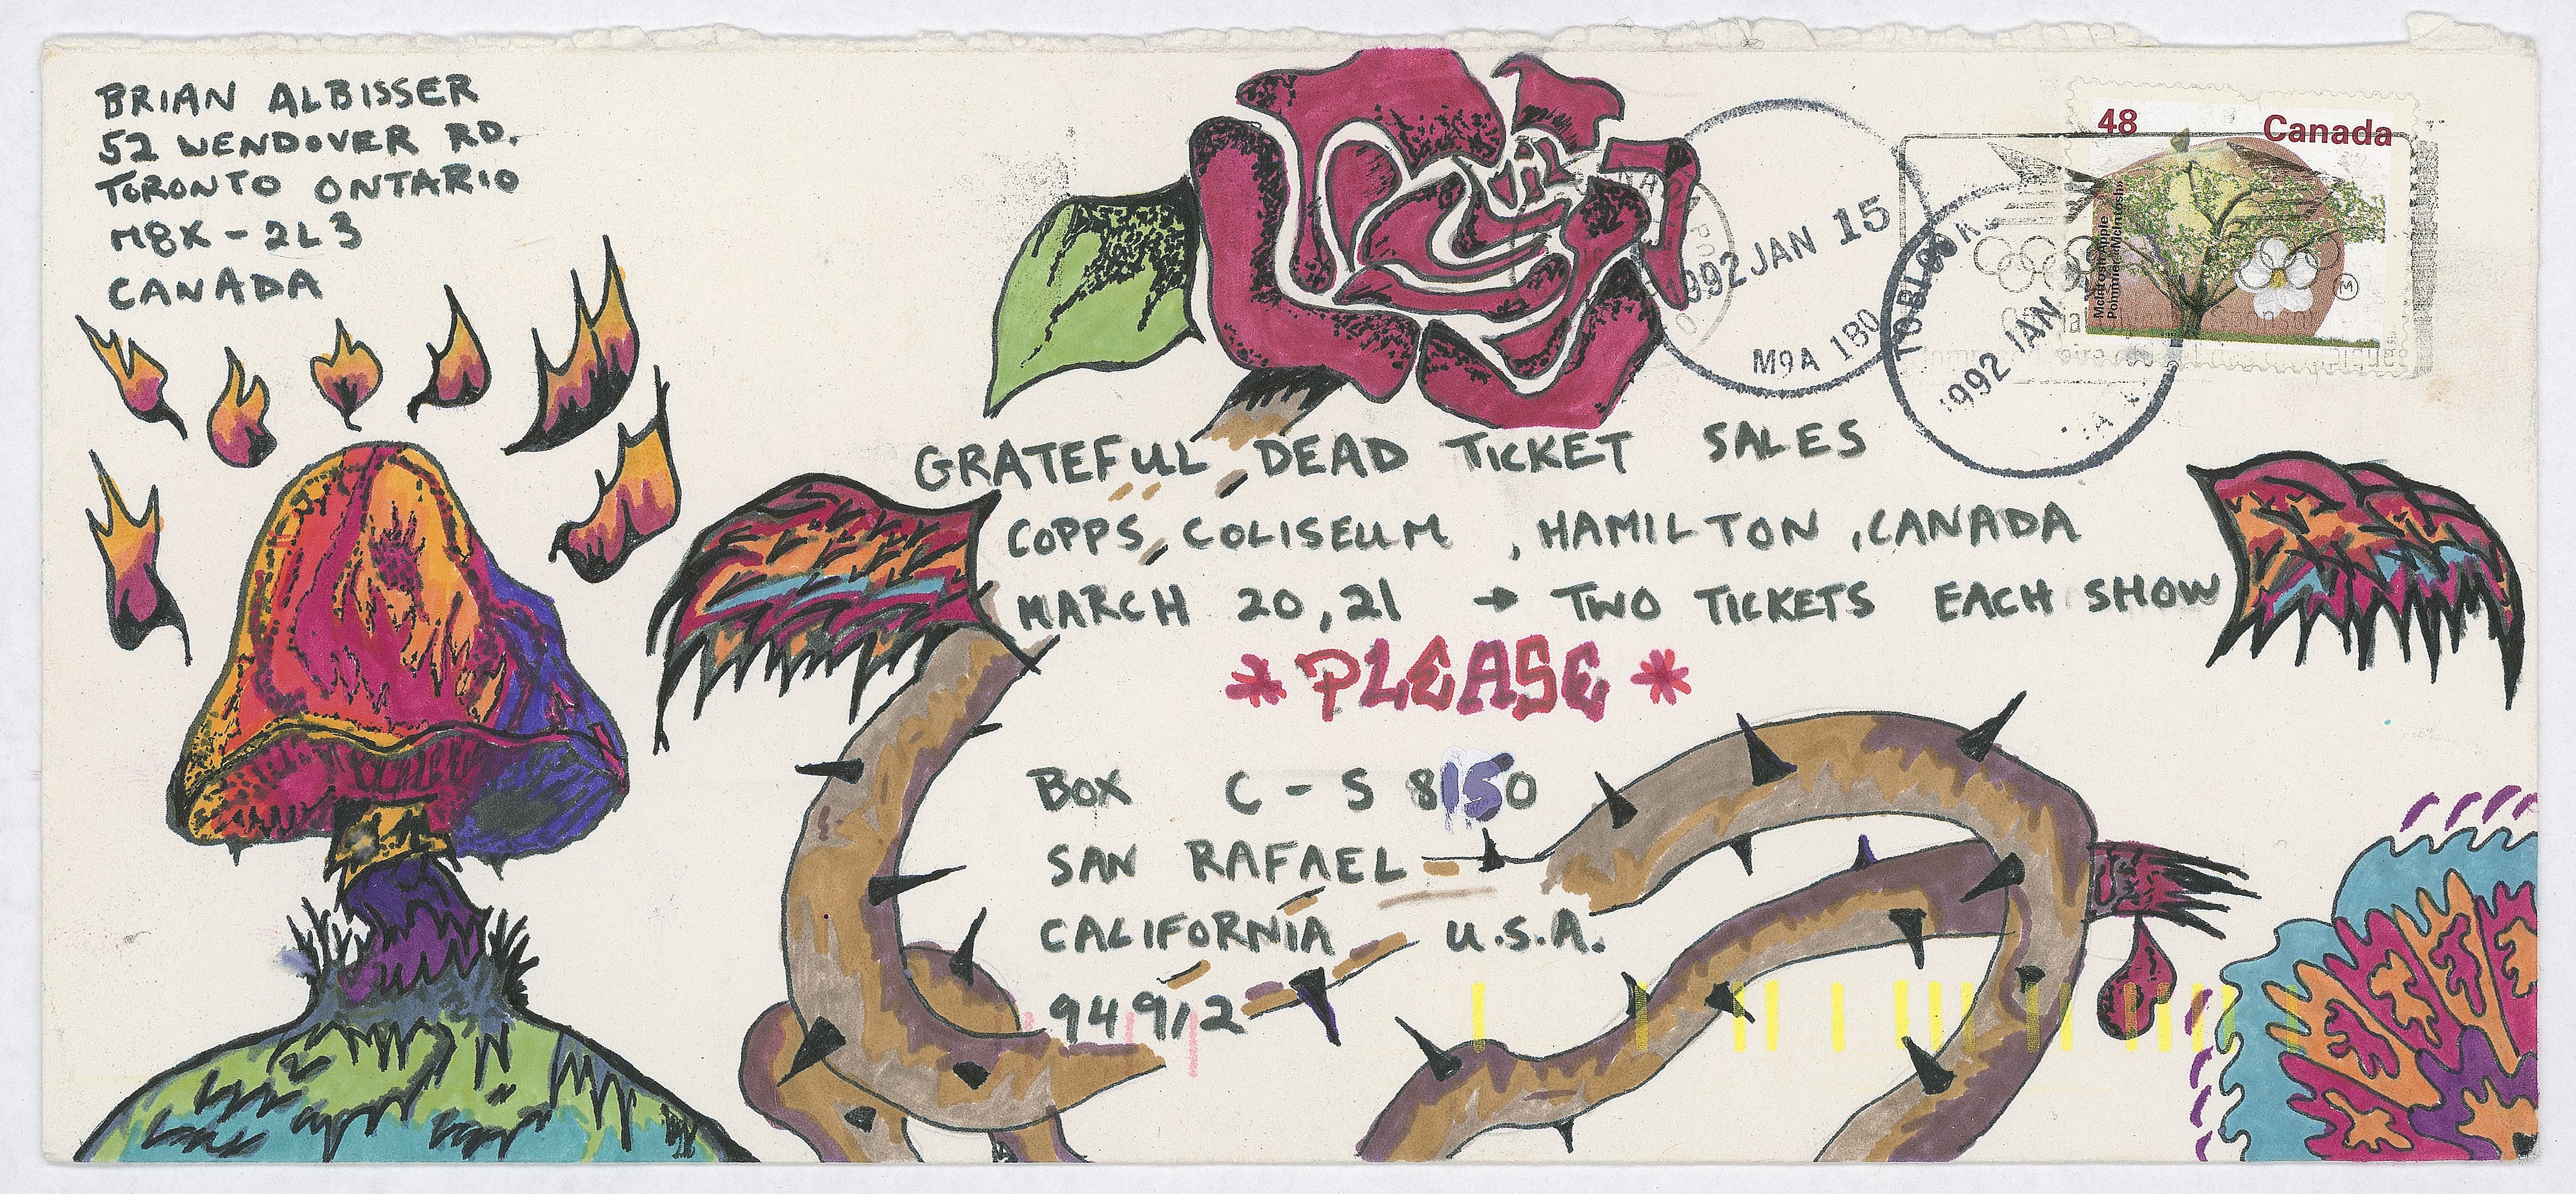 BRIAN ALBISSER
52 WENDOVER RD.
TORONTO ONTARIO
M8X - 2L3
CANADA
48 Canada
McIntosh Apple
Pommier McIntosh
M
1992 JAN 15
M9A 1B0
1992 JAN
GRATEFUL DEAD TICKET SALES
COPPS COLISEUM , HAMILTON , CANADA
MARCH 20, 21 → TWO TICKETS EACH SHOW
* PLEASE *
BOX C - S 8150
SAN RAFAEL
CALIFORNIA U.S.A.
94912